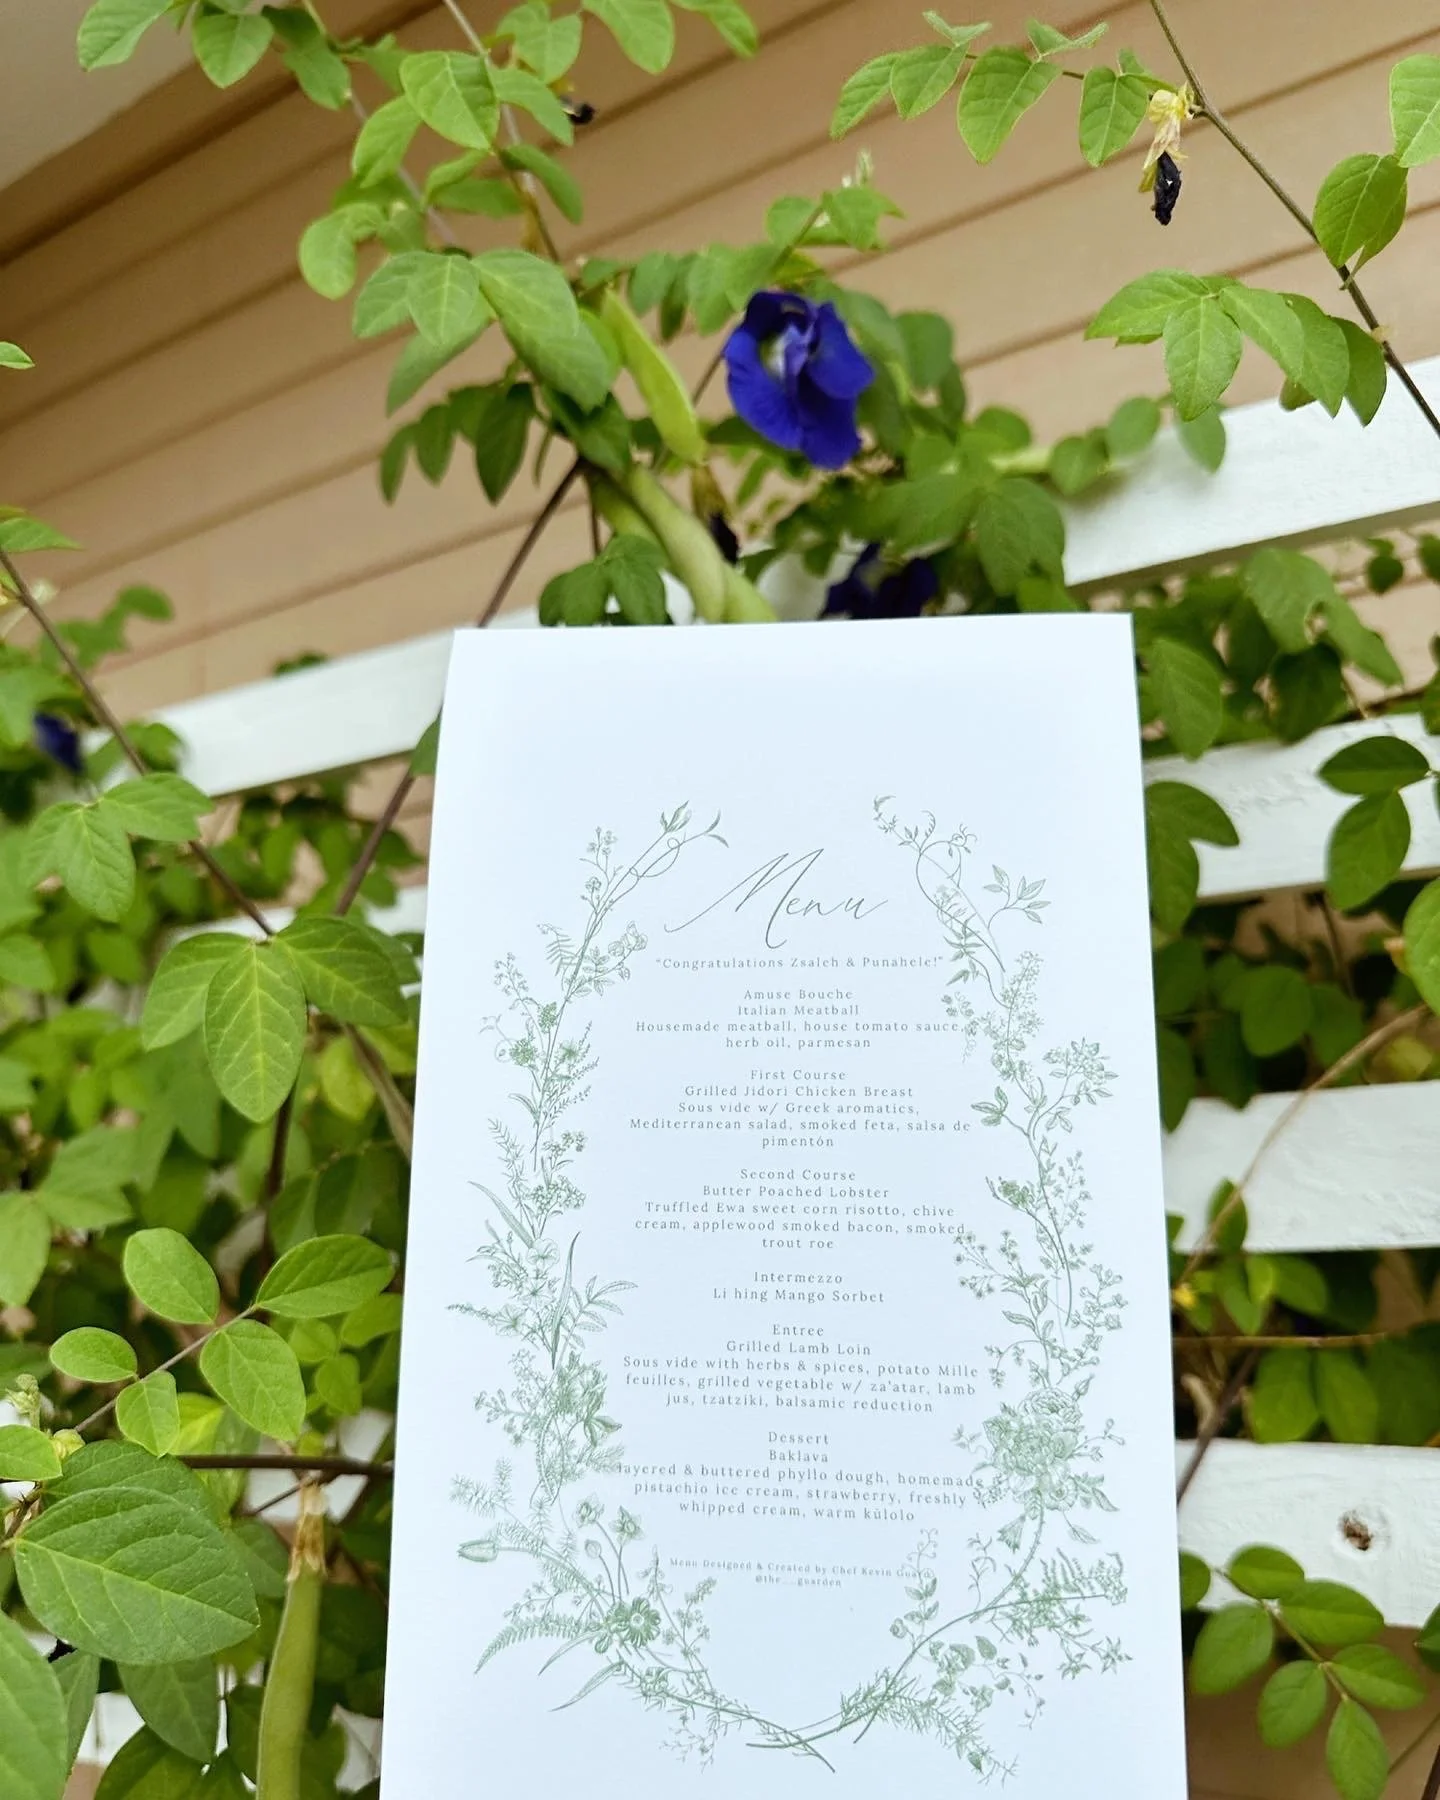 Menu
"Congratulations Zsaleh & Punahele!"
Amuse Bouche
Italian Meatball
Housemade meatball, house tomato sauce,
herb oil, parmesan
First Course
Grilled Jidori Chicken Breast
Sous vide w/ Greek aromatics,
Mediterranean salad, smoked feta, salsa de
pimentón
Second Course
Butter Poached Lobster
Truffled Ewa sweet corn risotto, chive
cream, applewood smoked bacon, smoked
trout roe
Intermezzo
Li hing Mango Sorbet
Entree
Grilled Lamb Loin
Sous vide with herbs & spices, potato Mille
feuilles, grilled vegetable w/ za'atar, lamb
jus, tzatziki, balsamic reduction
Dessert
Baklava
layered & buttered phyllo dough, homemade
pistachio ice cream, strawberry, freshly
whipped cream, warm kūlolo
Menu Designed & Created by Chef Kevin
@the__guarden